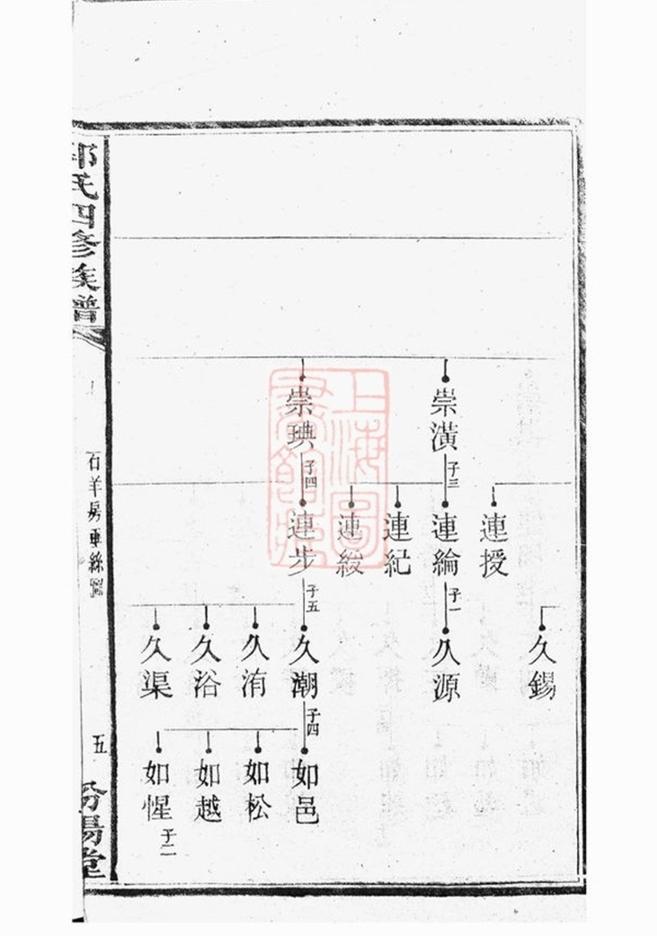 氏四修族譜
石羊房垂絲圖
五
汾陽堂
崇璜
子三
崇琠
子四
連授
連綸
子一
連紀
連緩
連步
子五
久錫
久源
久潮
子四
久洧
久浴
久渠
如邑
如松
如越
如惺
子二
上海圖書館藏